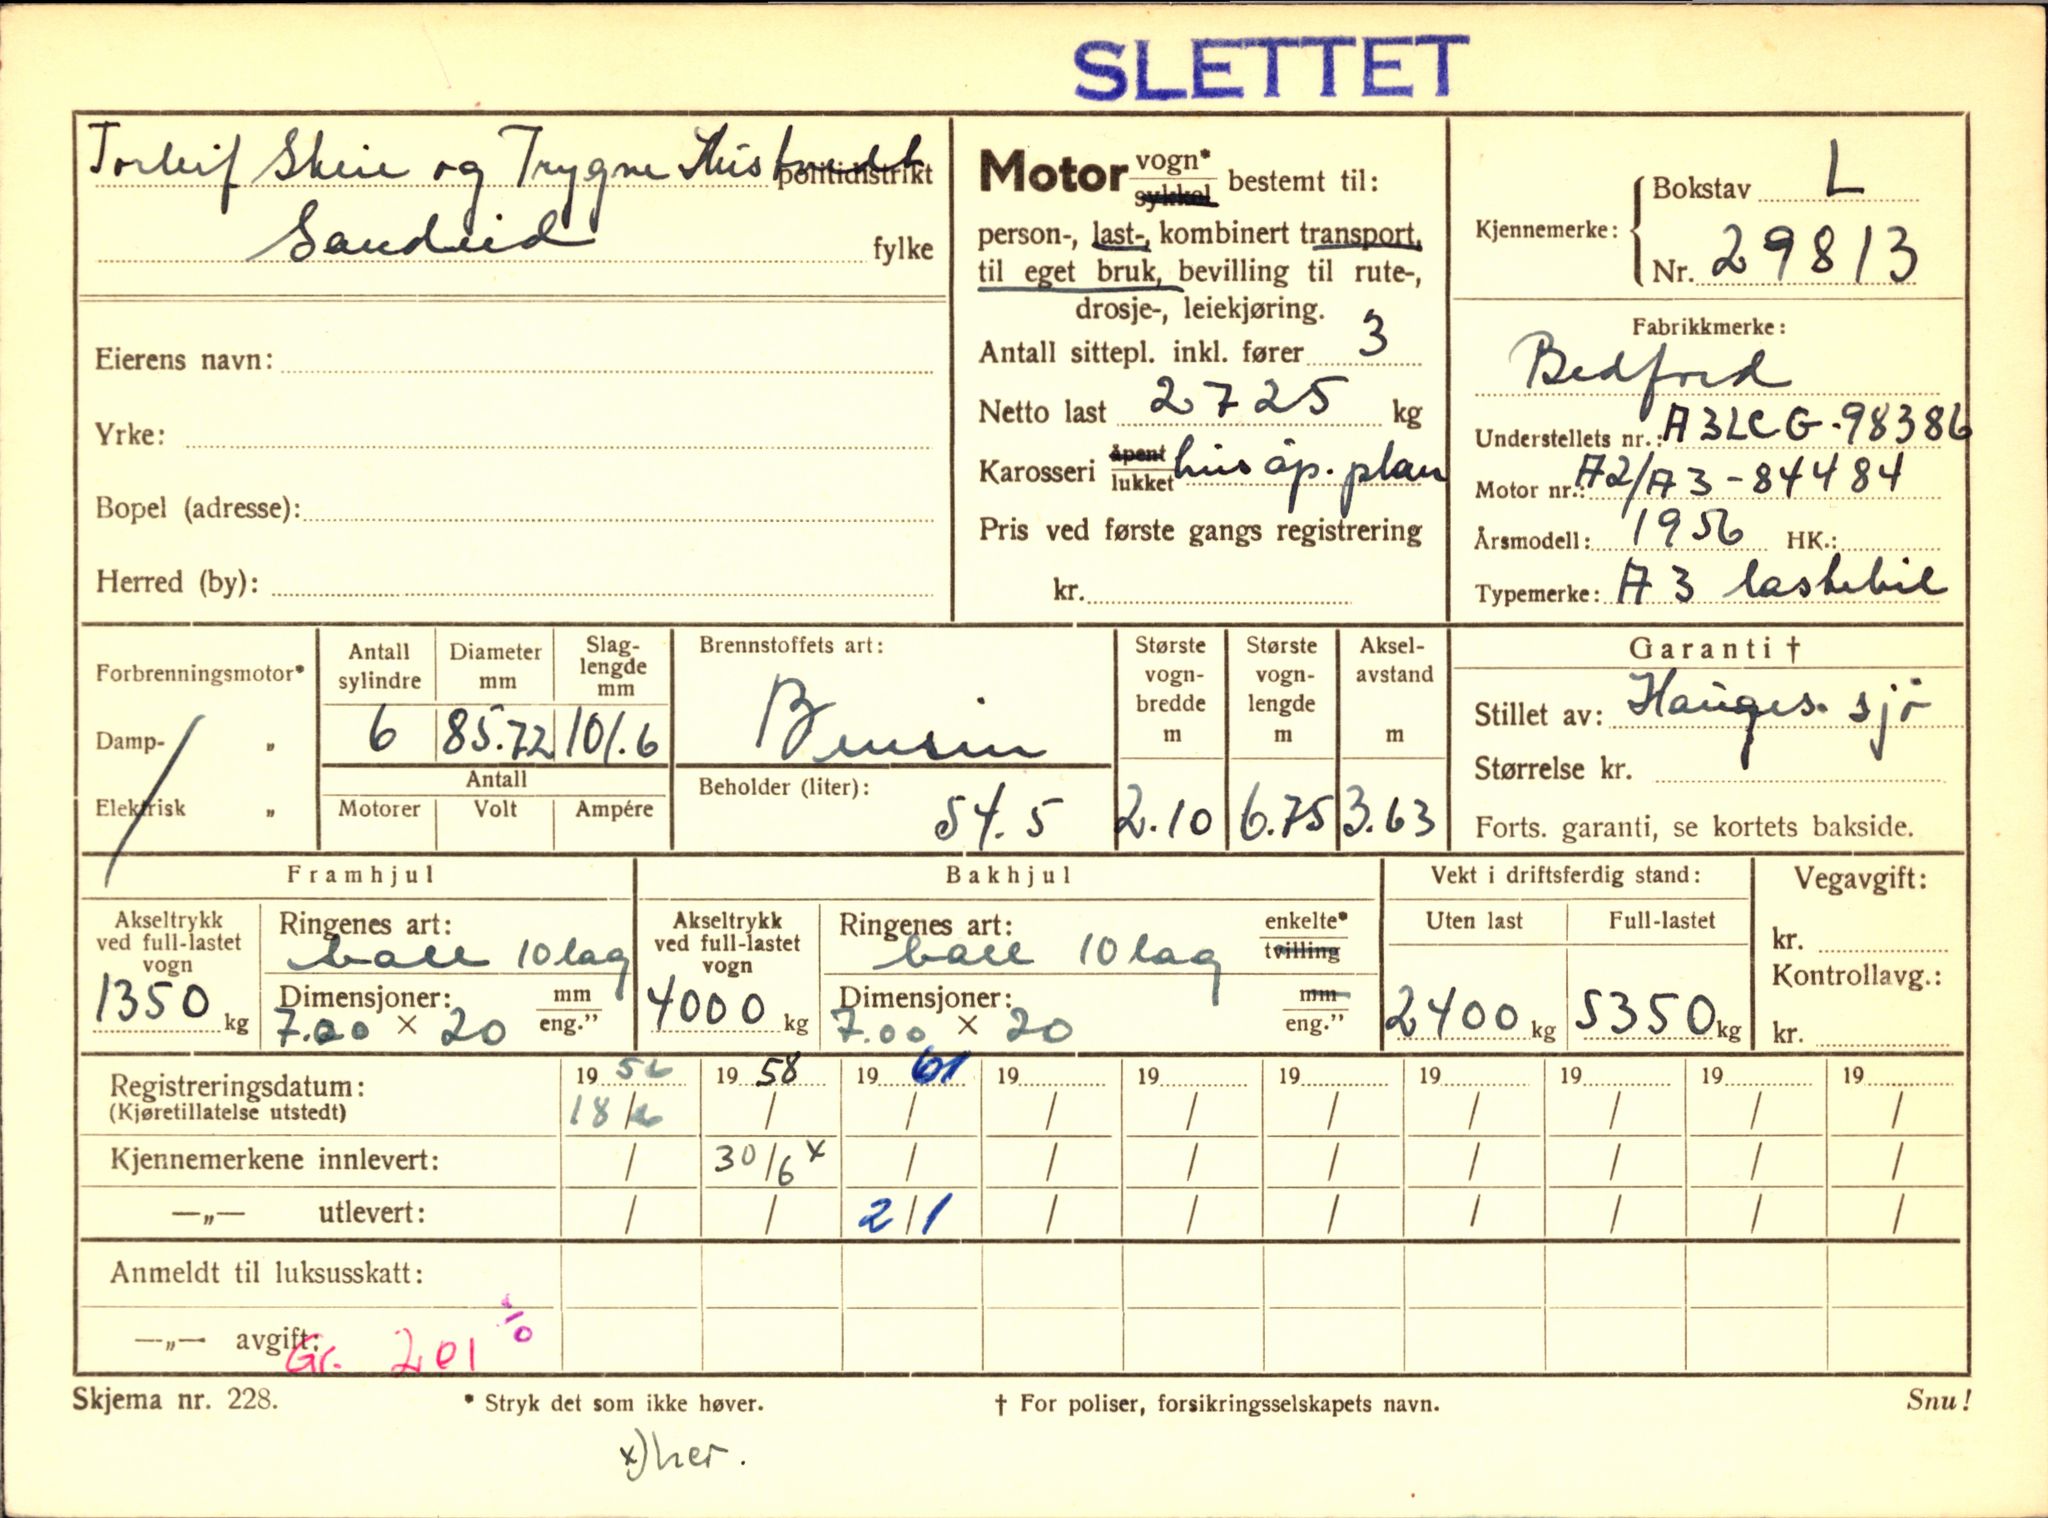 SLETTET
Torleif Skeie og Trygve politidistrikt
Sandeid fylke
Eierens navn:
Yrke:
Bopel (adresse):
Herred (by):
Motor vogn* sykkel bestemt til:
person-, last-, kombinert transport,
til eget bruk, bevilling til rute-,
drosje-, leiekjøring.
Antall sittepl. inkl. fører 3
Netto last 2725 kg
Karosseri åpent lukket hus åp. plan
Pris ved første gangs registrering
kr.
Kjennemerke: Bokstav L
Nr. 29813
Fabrikkmerke:
Bedford
Understellets nr.: A3LCG-98386
Motor nr.: A2/A3-84484
Årsmodell: 1956 HK.:
Typemerke: A3 lastebil
Forbrenningsmotor*
Damp- „
Elektrisk „
Antall sylindre
6
Diameter mm
85.72
Slag-lengde mm
101.6
Antall
Motorer Volt Ampére
Brennstoffets art:
Bensin
Beholder (liter):
54.5
Største vogn-bredde m
2.10
Største vogn-lengde m
6.75
Aksel-avstand m
3.63
Garanti †
Stillet av: Hauges. sjø
Størrelse kr.
Forts. garanti, se kortets bakside.
Framhjul
Akseltrykk ved full-lastet vogn
1350 kg
Ringenes art:
ball 10 lag
Dimensjoner: mm eng.”
7.00 × 20
Bakhjul
Akseltrykk ved full-lastet vogn
4000 kg
Ringenes art: enkelte* tvilling
ball 10 lag
Dimensjoner: mm eng.”
7.00 × 20
Vekt i driftsferdig stand:
Uten last Full-lastet
2400 kg 5350 kg
Vegavgift:
kr.
Kontrollavg.:
kr.
Registreringsdatum: 1956 1958 1961 19 19 19 19 19 19 19
(Kjøretillatelse utstedt) 18/6 / / / / / / / / /
Kjennemerkene innlevert: / 30/6 x / / / / / / / /
—„— utlevert: / / 2/1 / / / / / / /
Anmeldt til luksusskatt:
—„— avgift: Gr. 201
Skjema nr. 228. * Stryk det som ikke høver. † For poliser, forsikringsselskapets navn. Snu!
x) her.